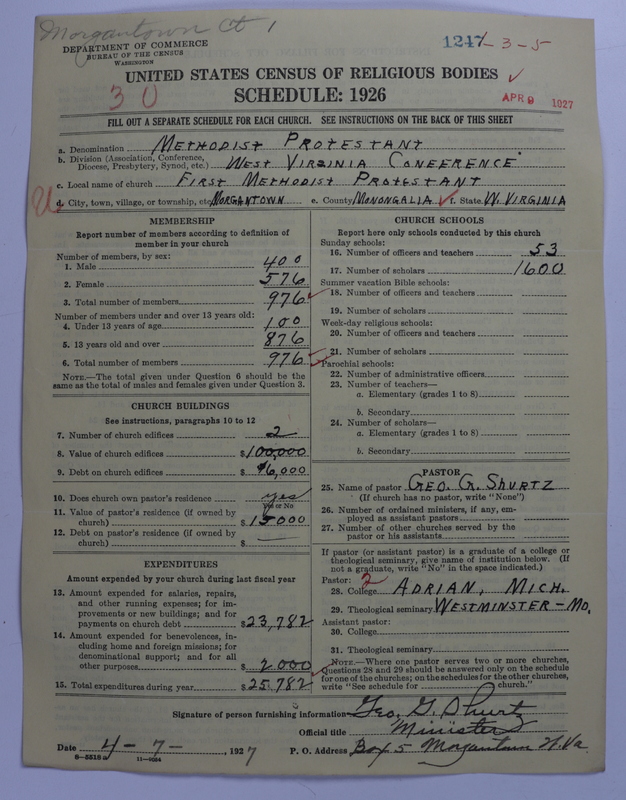 Morgantown Ct 1
DEPARTMENT OF COMMERCE
BUREAU OF THE CENSUS
WASHINGTON
1247-3-5
UNITED STATES CENSUS OF RELIGIOUS BODIES
SCHEDULE: 1926
30
APR 9 1927
FILL OUT A SEPARATE SCHEDULE FOR EACH CHURCH. SEE INSTRUCTIONS ON THE BACK OF THIS SHEET
a. Denomination METHODIST PROTESTANT
b. Division (Association, Conference, Diocese, Presbytery, Synod, etc.) WEST VIRGINIA CONFERENCE
c. Local name of church FIRST METHODIST PROTESTANT
U d. City, town, village, or township, etc. MORGANTOWN e. County MONONGALIA f. State W. VIRGINIA
MEMBERSHIP
Report number of members according to definition of
member in your church
Number of members, by sex:
1. Male 400
2. Female 576
3. Total number of members 976
Number of members under and over 13 years old:
4. Under 13 years of age 100
5. 13 years old and over 876
6. Total number of members 976
NOTE.—The total given under Question 6 should be
same as the total of males and females given under Question 3.
CHURCH BUILDINGS
See instructions, paragraphs 10 to 12
7. Number of church edifices 2
8. Value of church edifices $100,000
9. Debt on church edifices $6,000
10. Does church own pastor's residence yes
Yes or No
11. Value of pastor's residence (if owned by
church) $15000
12. Debt on pastor's residence (if owned by
church) $ —
EXPENDITURES
Amount expended by your church during last fiscal year
13. Amount expended for salaries, repairs,
and other running expenses; for im-
provements or new buildings; and for
payments on church debt $23,782
14. Amount expended for benevolences, in-
cluding home and foreign missions; for
denominational support; and for all
other purposes $2000
15. Total expenditures during year $25,782
CHURCH SCHOOLS
Report here only schools conducted by this church
Sunday schools:
16. Number of officers and teachers 53
17. Number of scholars 1600
Summer vacation Bible schools:
18. Number of officers and teachers
19. Number of scholars
Week-day religious schools:
20. Number of officers and teachers
21. Number of scholars
Parochial schools:
22. Number of administrative officers
23. Number of teachers—
a. Elementary (grades 1 to 8)
b. Secondary
24. Number of scholars—
a. Elementary (grades 1 to 8)
b. Secondary
PASTOR
25. Name of pastor GEO. G. SHURTZ
(If church has no pastor, write "None")
26. Number of ordained ministers, if any, em-
ployed as assistant pastors
27. Number of other churches served by the
pastor or his assistants
If pastor (or assistant pastor) is a graduate of a college or
theological seminary, give name of institution below. (If
not a graduate, write "No" in the space indicated.)
Pastor: 2
28. College ADRIAN, MICH.
29. Theological seminary WESTMINSTER—MO.
Assistant pastor:
30. College
31. Theological seminary
NOTE.—Where one pastor serves two or more churches,
Questions 28 and 29 should be answered only on the schedule
for one of the churches; on the schedules for the other churches,
write "See schedule for church."
Signature of person furnishing information Geo. G. Shurtz
Official title Minister
Date 4-7-, 1927 P. O. Address Box 5 Morgantown W. Va.
11—9064